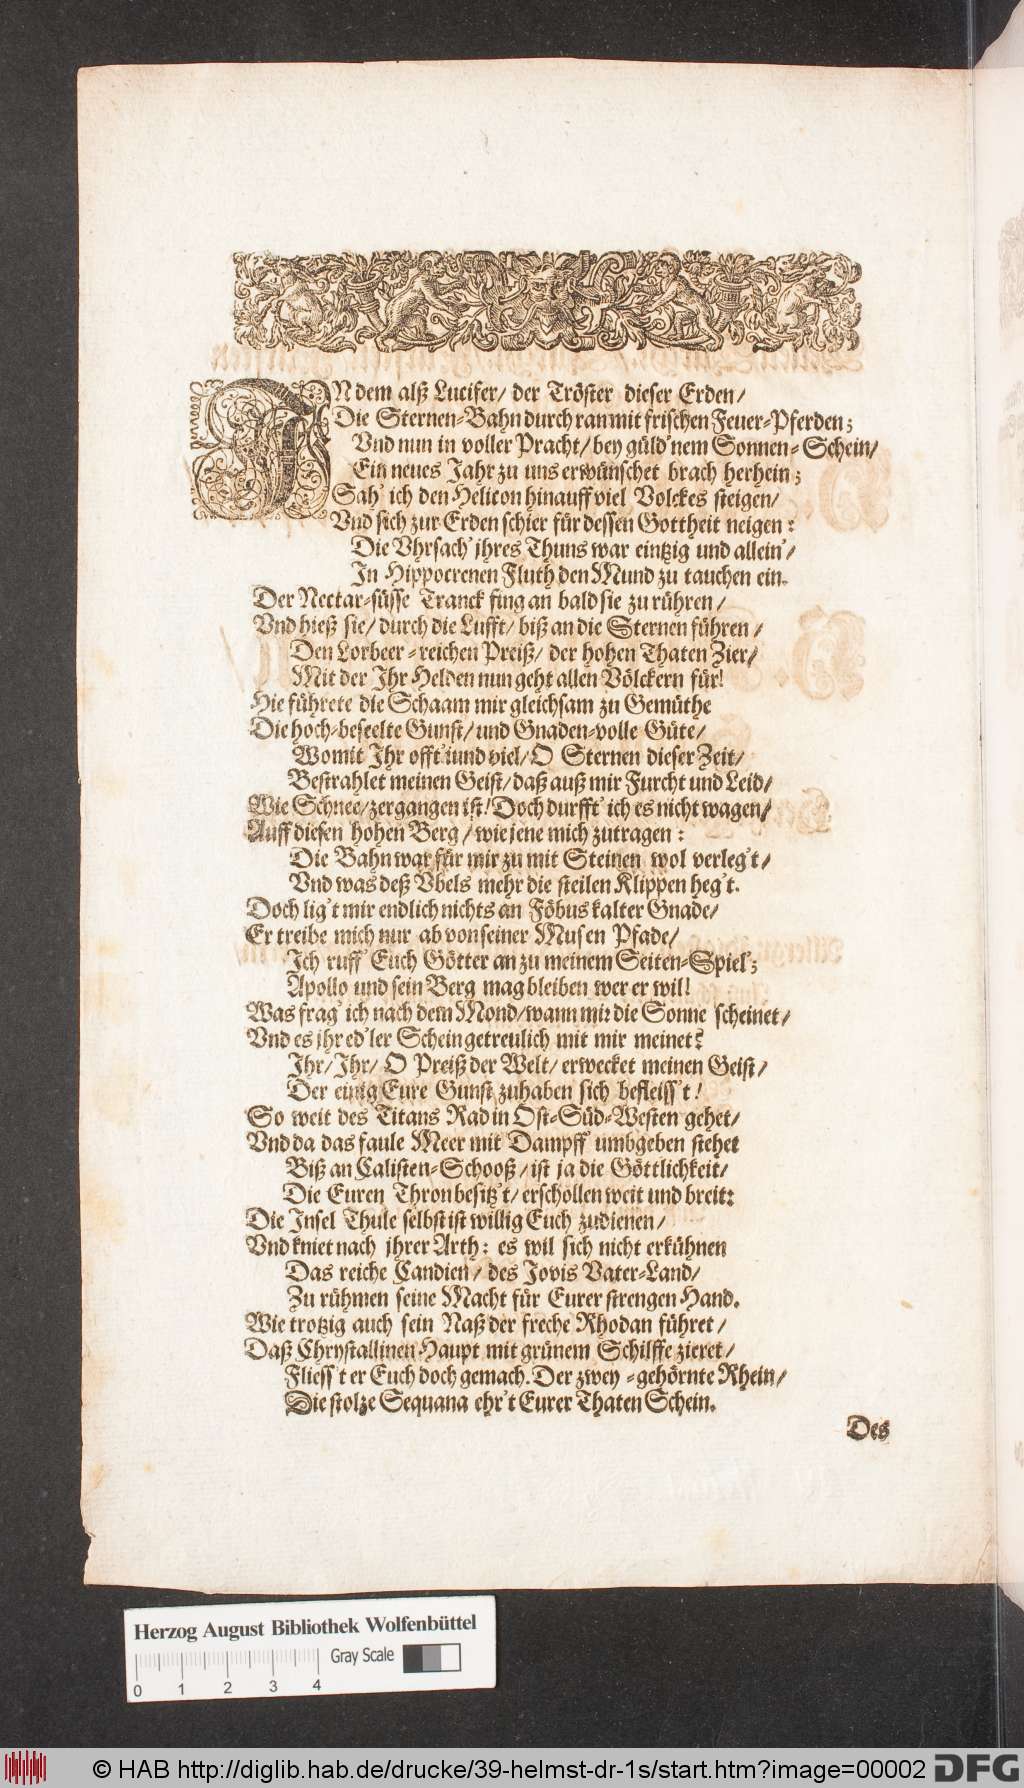 IN dem alß Lucifer/ der Tröster dieser Erden/
Die Sternen-Bahn durch ran mit frischen Feuer-Pferden;
Vnd nun in voller Pracht/ bey güld'nem Sonnen-Schein/
Ein neues Jahr zu uns erwünschet brach herhein;
Sah' ich den Helicon hinauff viel Volckes steigen/
Vnd sich zur Erden schier für dessen Gottheit neigen:
Die Vhrsach' jhres Thuns war eintzig und allein'/
In Hippocrenen Fluth den Mund zu tauchen ein.
Der Nectar-süsse Tranck fing an bald sie zu rühren/
Vnd hieß sie/ durch die Lufft/ biß an die Sternen führen/
Den Lorbeer-reichen Preiß/ der hohen Thaten Zier/
Mit der Ihr Helden nun geht allen Völckern für!
Hie führete die Schaam mir gleichsam zu Gemüthe
Die hoch-beseelte Gunst/ und Gnaden-volle Güte/
Womit Ihr offt' und viel/ O Sternen dieser Zeit/
Bestrahlet meinen Geist/ daß auß mir Furcht und Leid/
Wie Schnee/ zergangen ist! Doch durfft' ich es nicht wagen/
Auff diesen hohen Berg/ wie jene mich zutragen:
Die Bahn war für mir zu mit Steinen wol verleg't/
Vnd was deß Vbels mehr die steilen Klippen heg't.
Doch lig't mir endlich nichts an Föbus kalter Gnade/
Er treibe mich nur ab von seiner Musen Pfade/
Ich ruff' Euch Götter an zu meinem Seiten-Spiel';
Apollo und sein Berg mag bleiben wer er wil!
Was frag' ich nach dem Mond/ wann mir die Sonne scheinet/
Vnd es jhr ed'ler Schein getreulich mit mir meinet?
Ihr/ Ihr/ O Preiß der Welt/ erwecket meinen Geist/
Der einig Eure Gunst zuhaben sich befleiss't!
So weit des Titans Rad in Ost-Süd-Westen gehet/
Vnd da das faule Meer mit Dampff' umbgeben stehet
Biß an Calisten-Schooß/ ist ja die Göttlichkeit/
Die Euren Thron besitz't/ erschollen weit und breit:
Die Insel Thule selbst ist willig Euch zudienen/
Vnd kniet nach jhrer Arth: es wil sich nicht erkühnen
Das reiche Candien/ des Jovis Vater-Land/
Zu rühmen seine Macht für Eurer strengen Hand.
Wie trotzig auch sein Naß der freche Rhodan führet/
Daß Chrystallinen Haupt mit grünem Schilffe zieret/
Fliess't er Euch doch gemach. Der zwey-gehörnte Rhein/
Die stolze Sequana ehr't Eurer Thaten Schein.
Des
Herzog August Bibliothek Wolfenbüttel
Gray Scale
0 1 2 3 4
© HAB http://diglib.hab.de/drucke/39-helmst-dr-1s/start.htm?image=00002 DFG